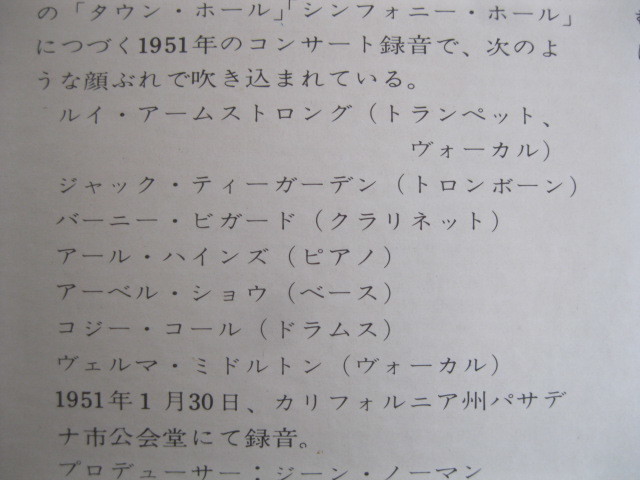 の「タウン・ホール」「シンフォニー・ホール」
につづく1951年のコンサート録音で、次のよ
うな顔ぶれで吹き込まれている。
ルイ・アームストロング（トランペット、
ヴォーカル）
ジャック・ティーガーデン（トロンボーン）
バーニー・ビガード（クラリネット）
アール・ハインズ（ピアノ）
アーベル・ショウ（ベース）
コジー・コール（ドラムス）
ヴェルマ・ミドルトン（ヴォーカル）
1951年1月30日、カリフォルニア州パサデ
ナ市公会堂にて録音。
プロデューサー：ジーン・ノーマン